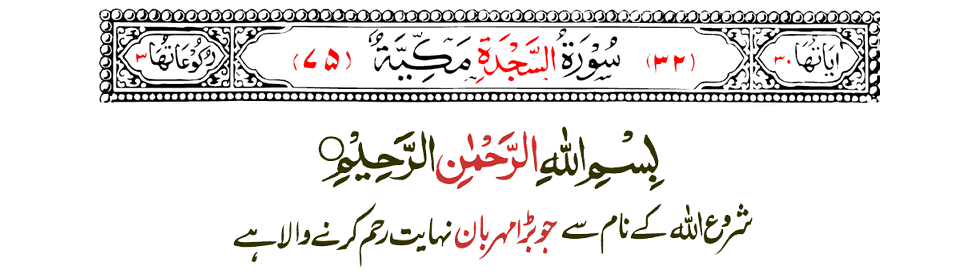 اٰيَاتُهَا ٣٠ (٣٢) سُوْرَةُ السَّجْدَةِ مَكِّيَّةٌ (٧٥) رُكُوْعَاتُهَا ٣
بِسْمِ اللّٰهِ الرَّحْمٰنِ الرَّحِيْمِ
شروع اللہ کے نام سے جو بڑا مہربان نہایت رحم کرنے والا ہے